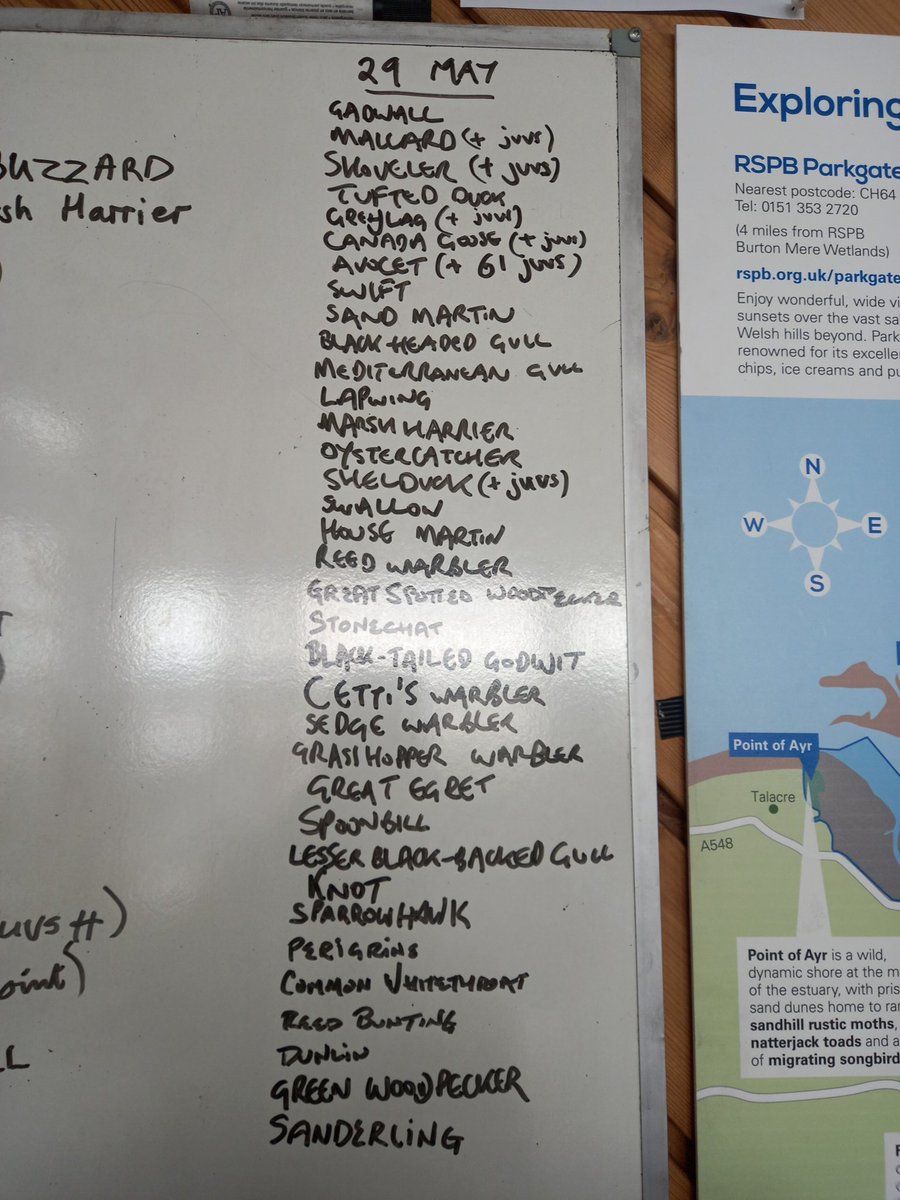 BUZZARD
sh Harrier
uvs #)
oint)
29 MAY
GADWALL
MALLARD (+ juvs)
SHOVELER (+ juvs)
TUFTED DUCK
GREYLAG (+ juvs)
CANADA GOOSE (+ juvs)
AVOCET (+ 61 juvs)
SWIFT
SAND MARTIN
BLACK-HEADED GULL
MEDITERRANEAN GULL
LAPWING
MARSH HARRIER
OYSTERCATCHER
SHELDUCK (+ juvs)
SWALLOW
HOUSE MARTIN
REED WARBLER
GREAT SPOTTED WOODPECKER
STONECHAT
BLACK-TAILED GODWIT
CETTI'S WARBLER
SEDGE WARBLER
GRASSHOPPER WARBLER
GREAT EGRET
SPOONBILL
LESSER BLACK-BACKED GULL
KNOT
SPARROWHAWK
PERIGRINE
COMMON WHITETHROAT
REED BUNTING
DUNLIN
GREEN WOODPECKER
SANDERLING
Exploring
RSPB Parkgate
Nearest postcode: CH64
Tel: 0151 353 2720
(4 miles from RSPB
Burton Mere Wetlands)
rspb.org.uk/parkgate
Enjoy wonderful, wide vi
sunsets over the vast sa
Welsh hills beyond. Park
renowned for its excellen
chips, ice creams and pu
N
W E
S
Point of Ayr
Talacre
A548
Point of Ayr is a wild,
dynamic shore at the m
of the estuary, with pris
sand dunes home to ra
sandhill rustic moths,
natterjack toads and a
of migrating songbird